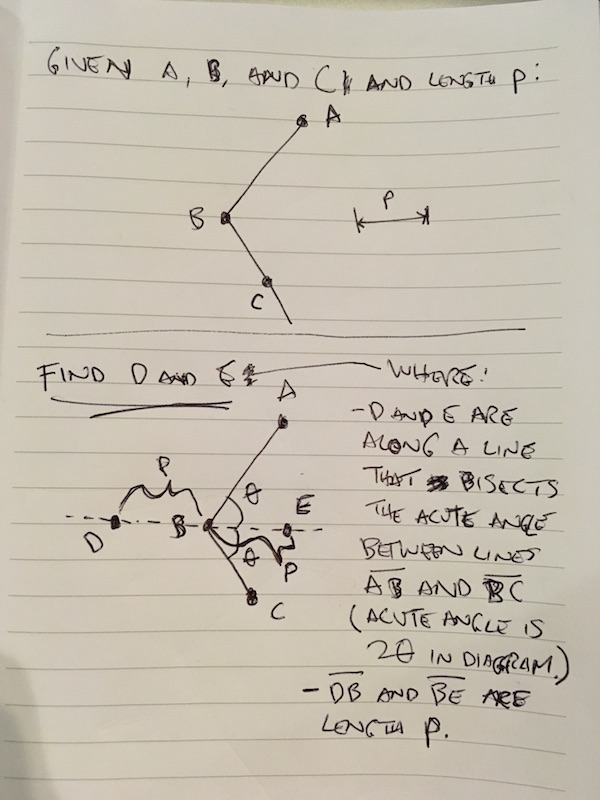 GIVEN A, B, AND C AND LENGTH P:
A
P
B
C
FIND D AND E WHERE:
A
- D AND E ARE
ALONG A LINE
THAT BISECTS
THE ACUTE ANGLE
BETWEEN LINES
AB AND BC
(ACUTE ANGLE IS
2θ IN DIAGRAM.)
- DB AND BE ARE
LENGTH P.
P
θ
E
D
B
θ
P
C